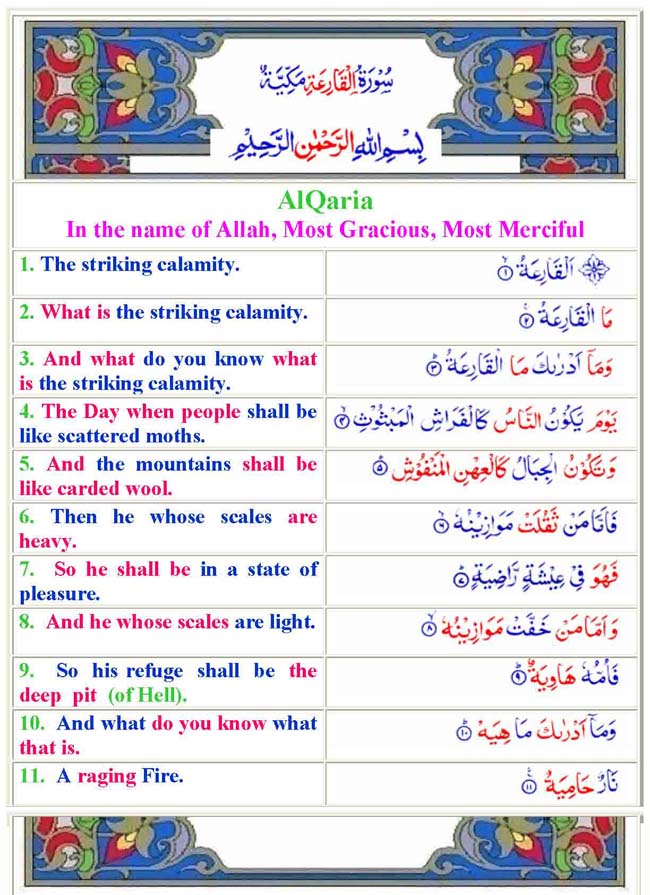 سُوْرَةُ الْقَارِعَةِ مَكِّيَّةٌ
بِسْمِ اللهِ الرَّحْمٰنِ الرَّحِيْمِ
AlQaria
In the name of Allah, Most Gracious, Most Merciful
1. The striking calamity.
اَلْقَارِعَةُ ۙ﴿۱﴾
2. What is the striking calamity.
مَا الْقَارِعَةُ ۚ﴿۲﴾
3. And what do you know what
is the striking calamity.
وَمَاۤ اَدْرٰىكَ مَا الْقَارِعَةُ ؕ﴿۳﴾
4. The Day when people shall be
like scattered moths.
يَوْمَ يَكُوْنُ النَّاسُ كَالْفَرَاشِ الْمَبْثُوْثِ ۙ﴿۴﴾
5. And the mountains shall be
like carded wool.
وَتَكُوْنُ الْجِبَالُ كَالْعِهْنِ الْمَنْفُوْشِ ؕ﴿۵﴾
6. Then he whose scales are
heavy.
فَاَمَّا مَنْ ثَقُلَتْ مَوَازِيْنُهٗ ۙ﴿۶﴾
7. So he shall be in a state of
pleasure.
فَهُوَ فِىْ عِيْشَةٍ رَّاضِيَةٍ ؕ﴿۷﴾
8. And he whose scales are light.
وَاَمَّا مَنْ خَفَّتْ مَوَازِيْنُهٗ ۙ﴿۸﴾
9. So his refuge shall be the
deep pit (of Hell).
فَاُمُّهٗ هَاوِيَةٌ ؕ﴿۹﴾
10. And what do you know what
that is.
وَمَاۤ اَدْرٰىكَ مَا هِيَهْ ؕ﴿۱۰﴾
11. A raging Fire.
نَارٌ حَامِيَةٌ ﴿۱۱﴾